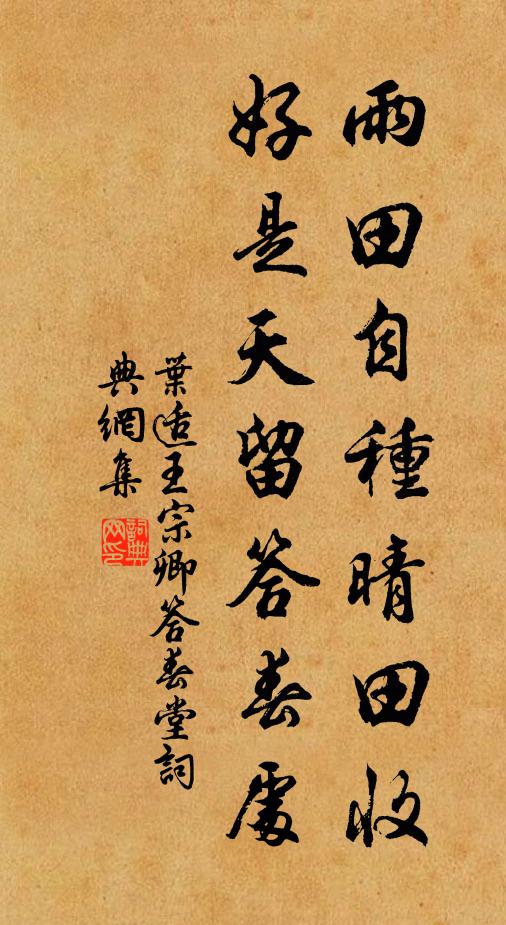 雨田自種晴田收
好是天留答春處
葉適王宗卿答春堂詞
典網集
詞典網印